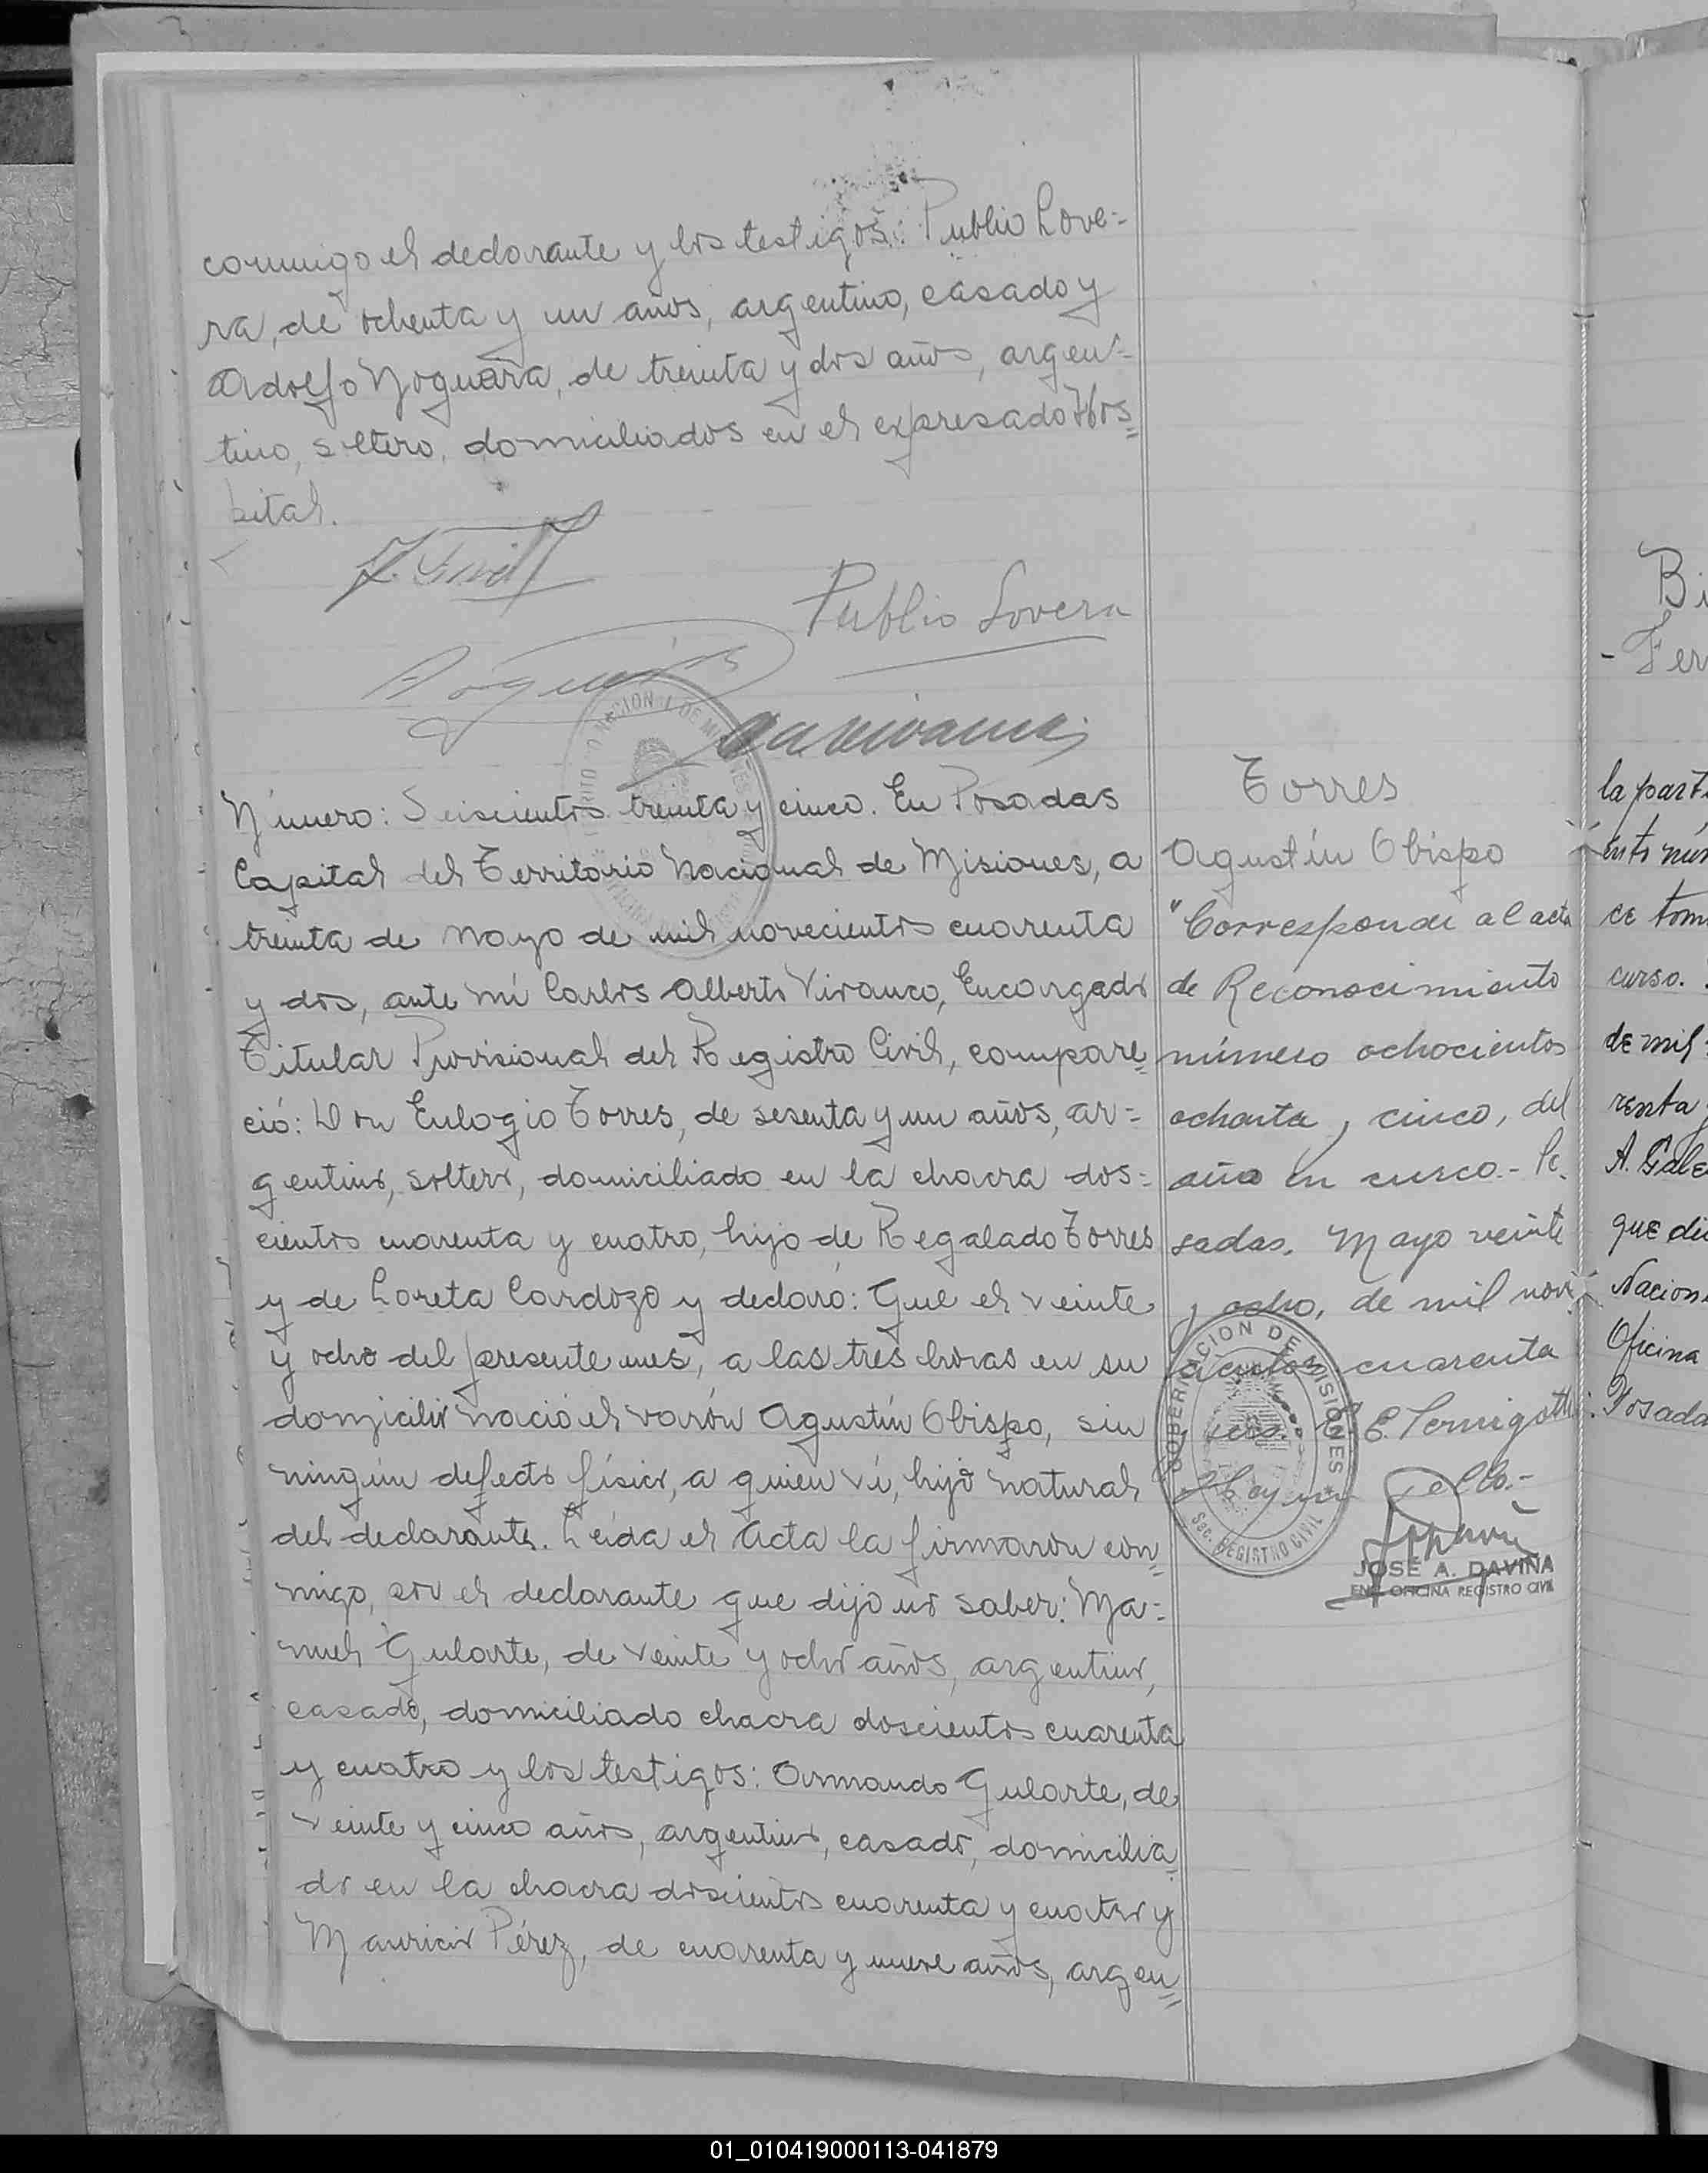 conmigo el declarante y los testigos: Publio Love=
ra, de ochenta y un años, argentino, casado y
Adolfo Noguera, de treinta y dos años, argen=
tino, soltero, domiciliados en el expresado Hos=
pital.
Publio Lovera
Número: Seiscientos treinta y cinco. En Posadas
Capital del Territorio Nacional de Misiones, a
treinta de Mayo de mil novecientos cuarenta
y dos, ante mí Carlos Alberto Vivanco, Encargado
Titular Provisional del Registro Civil, compare=
ció: Don Eulogio Torres, de sesenta y un años, ar=
gentino, soltero, domiciliado en la chacra dos=
cientos cuarenta y cuatro, hijo de Regalado Torres
y de Loreta Cardozo y declaró: Que el veinte
y ocho del presente mes, a las tres horas en su
domicilio nació el varón Agustín Obispo, sin
ningún defecto físico, a quien ví, hijo natural
del declarante. Leída el Acta la firmaron con=
migo, por el declarante que dijo no saber: Ma=
nuel Gularte, de veinte y ocho años, argentino,
casado, domiciliado chacra doscientos cuarenta
y cuatro y los testigos: Armando Gularte, de
veinte y cinco años, argentino, casado, domicilia=
do en la chacra doscientos cuarenta y cuatro y
Mauricio Pérez, de cuarenta y nueve años, argen=
Torres
Agustín Obispo
"Corresponde al acta
de Reconocimiento
número ochocientos
ochenta y cinco, del
año en curso.- Po
sadas, Mayo veinte
y ocho, de mil nove
cientos cuarenta
E. Pernigotti
Hay un sello.-
GOBERNACION DE MISIONES
Sec. REGISTRO CIVIL
JOSÉ A. DAVIÑA
ENC. OFICINA REGISTRO CIVIL
Bi
- Fer
la parti
ento núm
ce tom
curso.
de mil
renta
A. Gale
que di
Nacion
Oficina
Posada
01_010419000113-041879